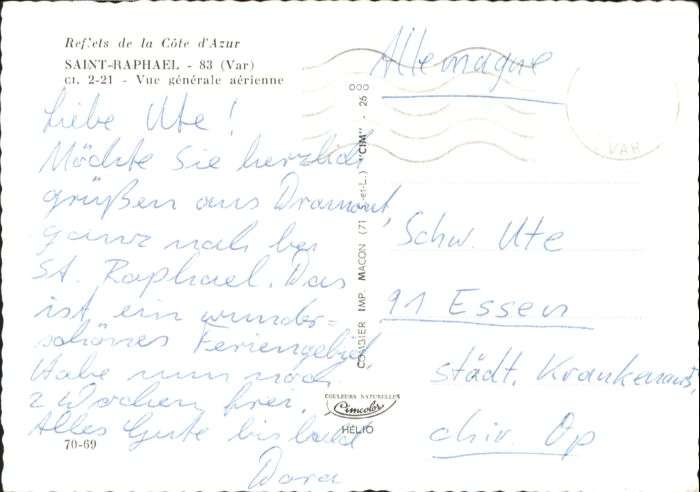 Reflets de la Côte d'Azur
SAINT-RAPHAEL - 83 (Var)
Cl. 2-21 - Vue générale aérienne
Liebe Ute!
Möchte Sie herzlich
grüßen aus Dramont,
ganz nah bei
St. Raphael. Das
ist ein wunder=
schönes Feriengebiet.
Habe nun noch
2 Wochen frei.
Alles Gute bis bald
Dora
70-69
COMBIER IMP. MACON (71 S.-et-L.) "CIM" - 26
COULEURS NATURELLES
Cimcolor
HÉLIO
VAR
Allemagne
Schw. Ute
91 Essen
städt. Krankenanst.
chir. Op